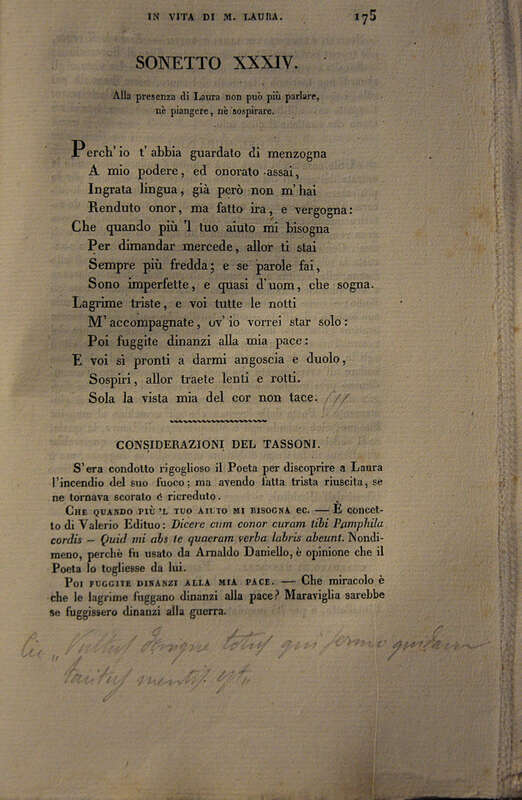 IN VITA DI M. LAURA. 175
SONETTO XXXIV.
Alla presenza di Laura non può più parlare,
nè piangere, nè sospirare.
Perch' io t' abbia guardato di menzogna
A mio podere, ed onorato assai,
Ingrata lingua, già però non m' hai
Renduto onor, ma fatto ira, e vergogna:
Che quando più 'l tuo aiuto mi bisogna
Per dimandar mercede, allor ti stai
Sempre più fredda; e se parole fai,
Sono imperfette, e quasi d'uom, che sogna.
Lagrime triste, e voi tutte le notti
M' accompagnate, ov' io vorrei star solo:
Poi fuggite dinanzi alla mia pace:
E voi sì pronti a darmi angoscia e duolo,
Sospiri, allor traete lenti e rotti.
Sola la vista mia del cor non tace.
CONSIDERAZIONI DEL TASSONI.
S'era condotto rigoglioso il Poeta per discoprire a Laura
l'incendio del suo fuoco; ma avendo fatta trista riuscita, se
ne tornava scorato e ricreduto.
CHE QUANDO PIÙ 'L TUO AIUTO MI BISOGNA EC. — È concet-
to di Valerio Edituo: Dicere cum conor curam tibi Pamphila
cordis — Quid mi abs te quaeram verba labris abeunt. Nondi-
meno, perchè fu usato da Arnaldo Daniello, è opinione che il
Poeta lo togliesse da lui.
POI FUGGITE DINANZI ALLA MIA PACE. — Che miracolo è
che le lagrime fuggano dinanzi alla pace? Maraviglia sarebbe
se fuggissero dinanzi alla guerra.
Cic „ Vultus denique totus qui sermo quidam
tacitus mentis est „